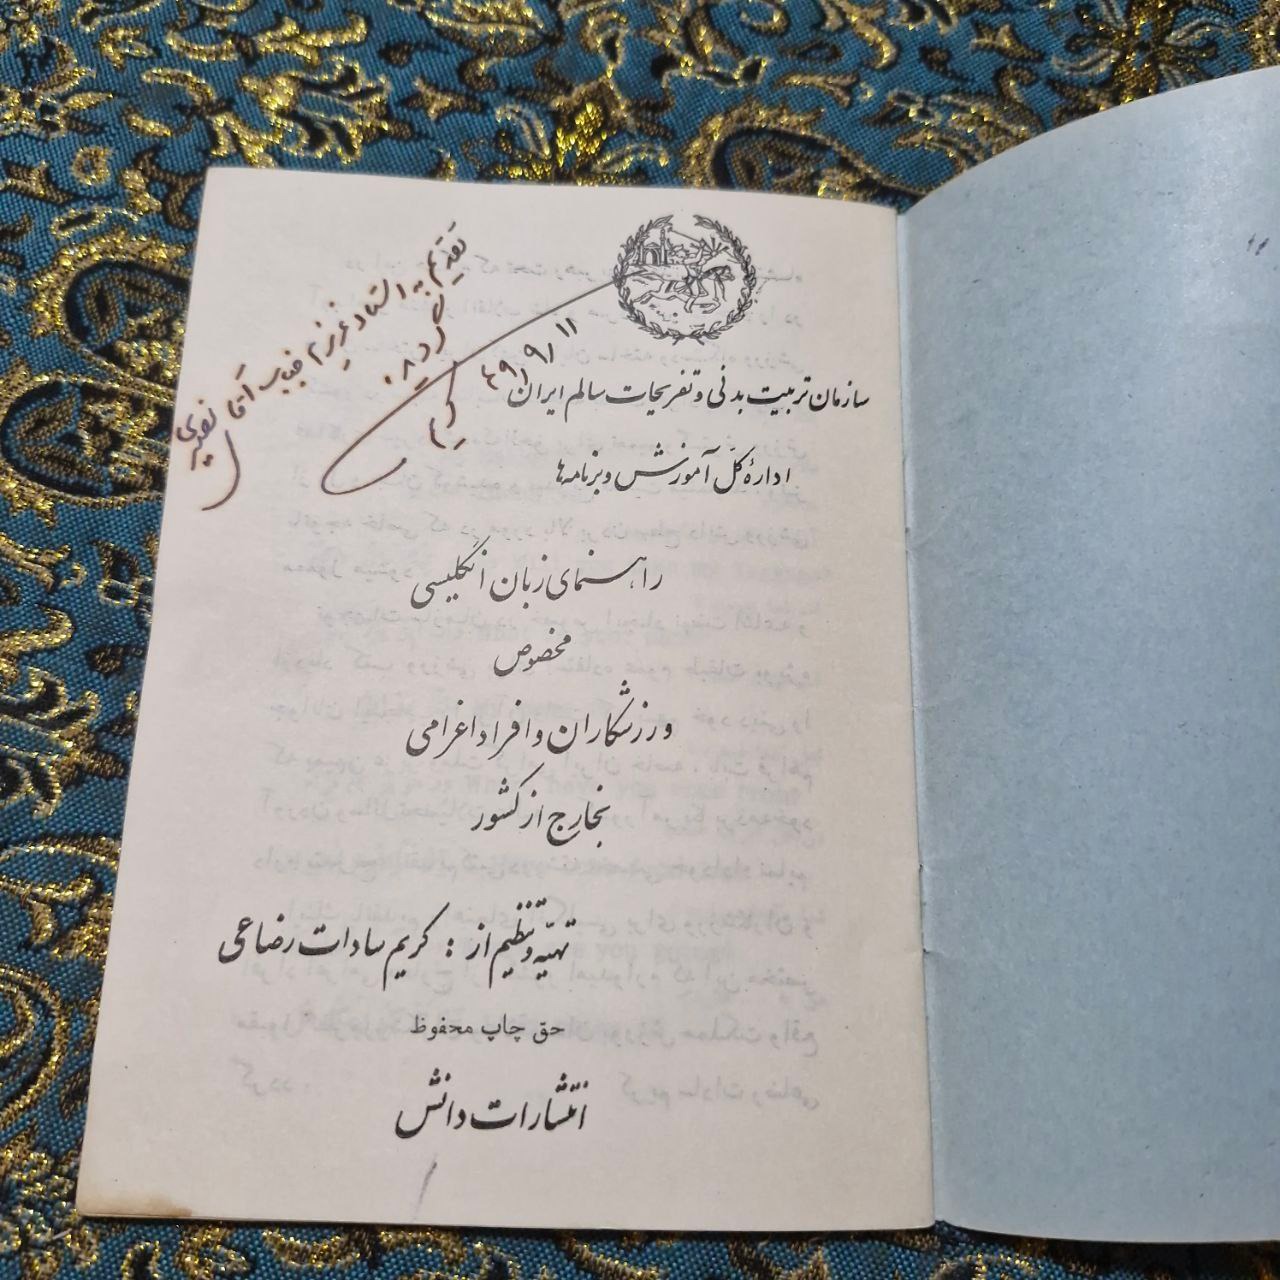 تقدیم به استاد عزیزم جناب آقای نصیری
گردید.
۴۹/۹/۱۱
سازمان تربیت بدنی و تفریحات سالم ایران
ادارهٔ کل آموزش و برنامه‌ها
راهنمای زبان انگلیسی
مخصوص
ورزشکاران و افراد اعزامی
بخارج از کشور
تهیه و تنظیم از : کریم سادات رضاعی
حق چاپ محفوظ
انتشارات دانش